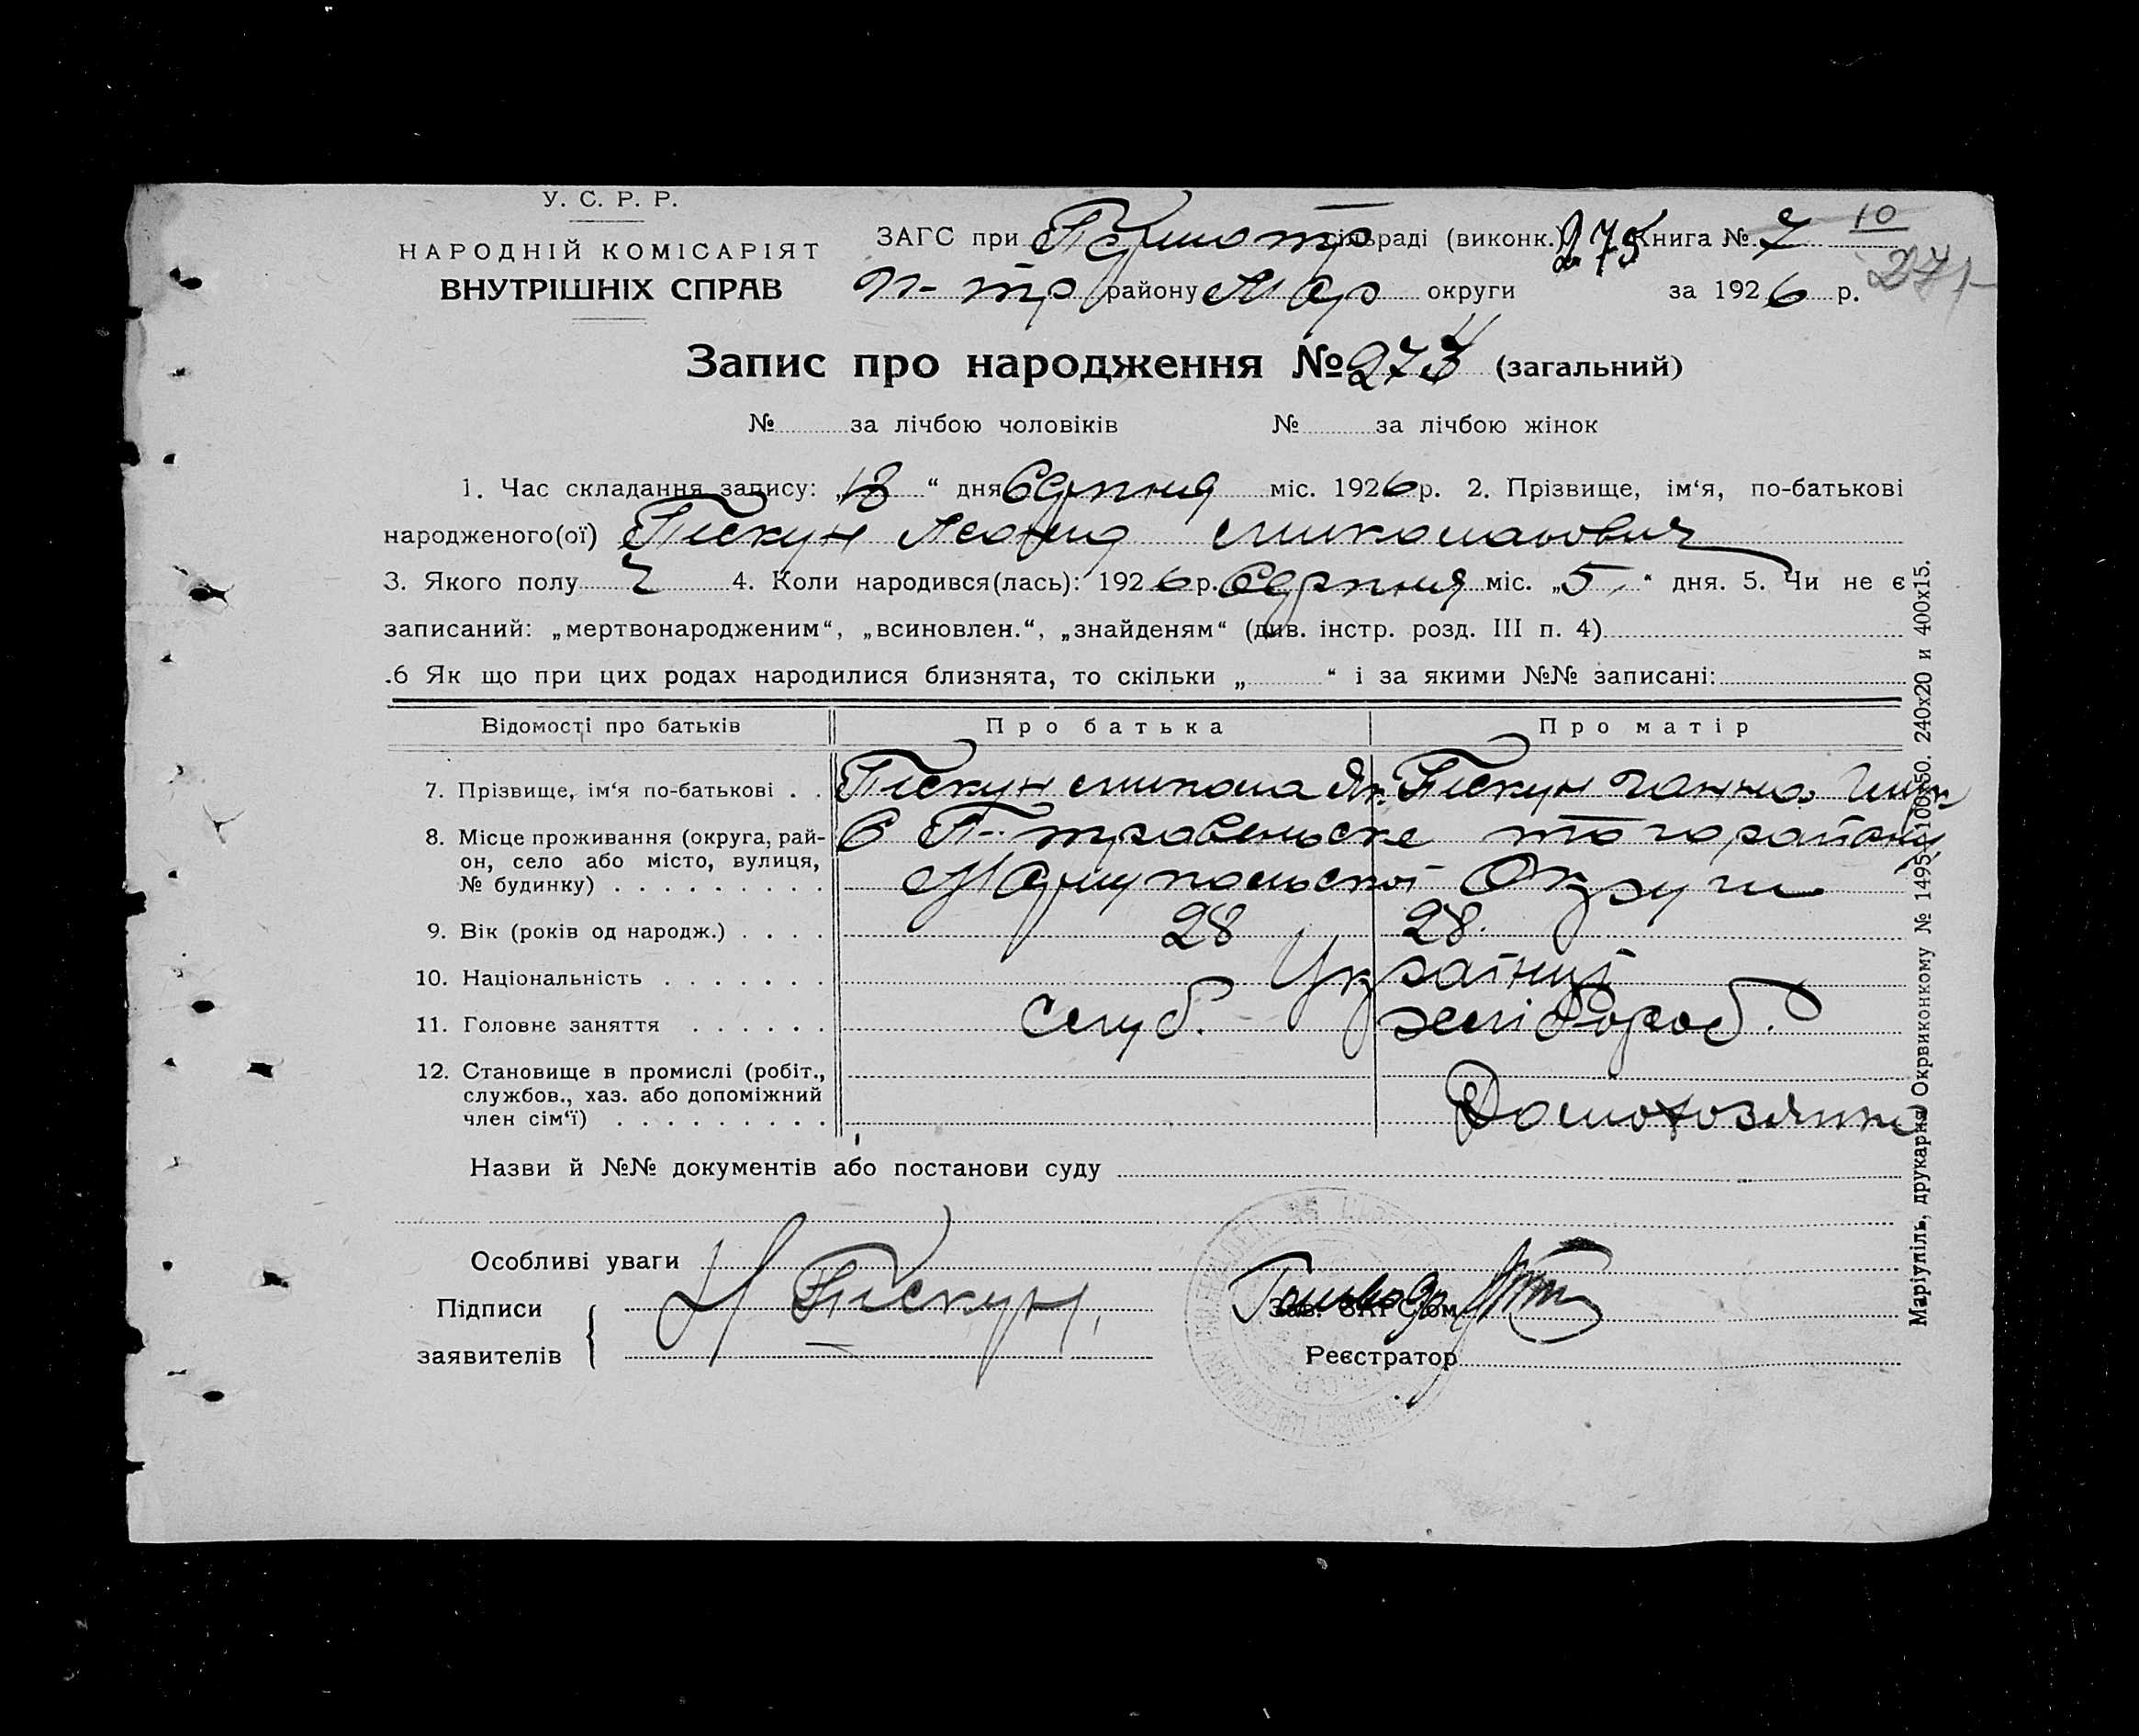 У. С. Р. Р.
НАРОДНІЙ КОМІСАРІЯТ
ВНУТРІШНІХ СПРАВ
ЗАГС при сільраді (виконк.) 275 Книга № 7 10
району Мар округи за 1926 р. 271
Запис про народження № 273 (загальний)
№ за лічбою чоловіків № за лічбою жінок
1. Час складання запису: „18“ дня Серпня міс. 1926 р. 2. Прізвище, ім‘я, по-батькові
народженого(ої) Пискун Леонид Миколаьович
3. Якого полу Ч 4. Коли народився(лась): 1926 р. Серпня міс. „5“ дня. 5. Чи не є
записаний: „мертвонародженим“, „всиновлен.“, „знайденям“ (див. інстр. розд. III п. 4)
.6 Як що при цих родах народилися близнята, то скільки „ “ і за якими №№ записані:
Відомості про батьків Про батька Про матір
7. Прізвище, ім‘я по-батькові . . Пискун Микола Як. Пискун Ганна
8. Місце проживання (округа, рай-
он, село або місто, вулиця,
№ будинку) . . . . . . . . .
С П-травенське того району
Маріупольської Округи
9. Вік (років од народж.) . . . . 28 28.
10. Національність . . . . . . . Українці
11. Головне заняття . . . . . . Служб. хлібороб.
12. Становище в промислі (робіт.,
службов., хаз. або допоміжний
член сім‘ї) . . . . . . . . .
Домохозяйка
Назви й №№ документів або постанови суду
Особливі уваги
Підписи
заявителів
Пискун
Зав. ЗАГС‘ом
Реєстратор
Маріупіль, друкарня Окрвиконкому № 1495-100х50. 240х20 и 400х15.